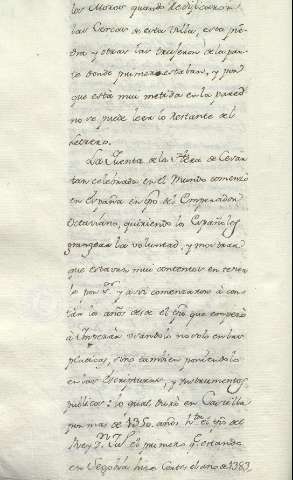 los Moros quando se dificaron
las Cercas de esta villa, esta pie
dra y otras las truxeron de la par
te donde primero estaban, y por
que esta mui metida en la pared
no se puede leer lo restante del
Letrero.
La Cuenta de la Era de Cesar
tan celebrada en el Mundo comenzo
en España en tpo del Emperador
Octaviano, queriendo los Españoles
grangear la voluntad, y mostrar
que estavan mui contentos en tener
lo por Sr. y assi comenzaron à con
tar los años desde el tpo que empezò
à Imperar usandolo no solo en las
platicas, sino tambien poniendolo
en las Escripturas, y Instrumentos
publicos: lo qual durò en Castilla
por mas de 1350. años hta el tpo del
Rey Dn Jun el primero qe estando
en Segobia hizo Cortes el año de 1383